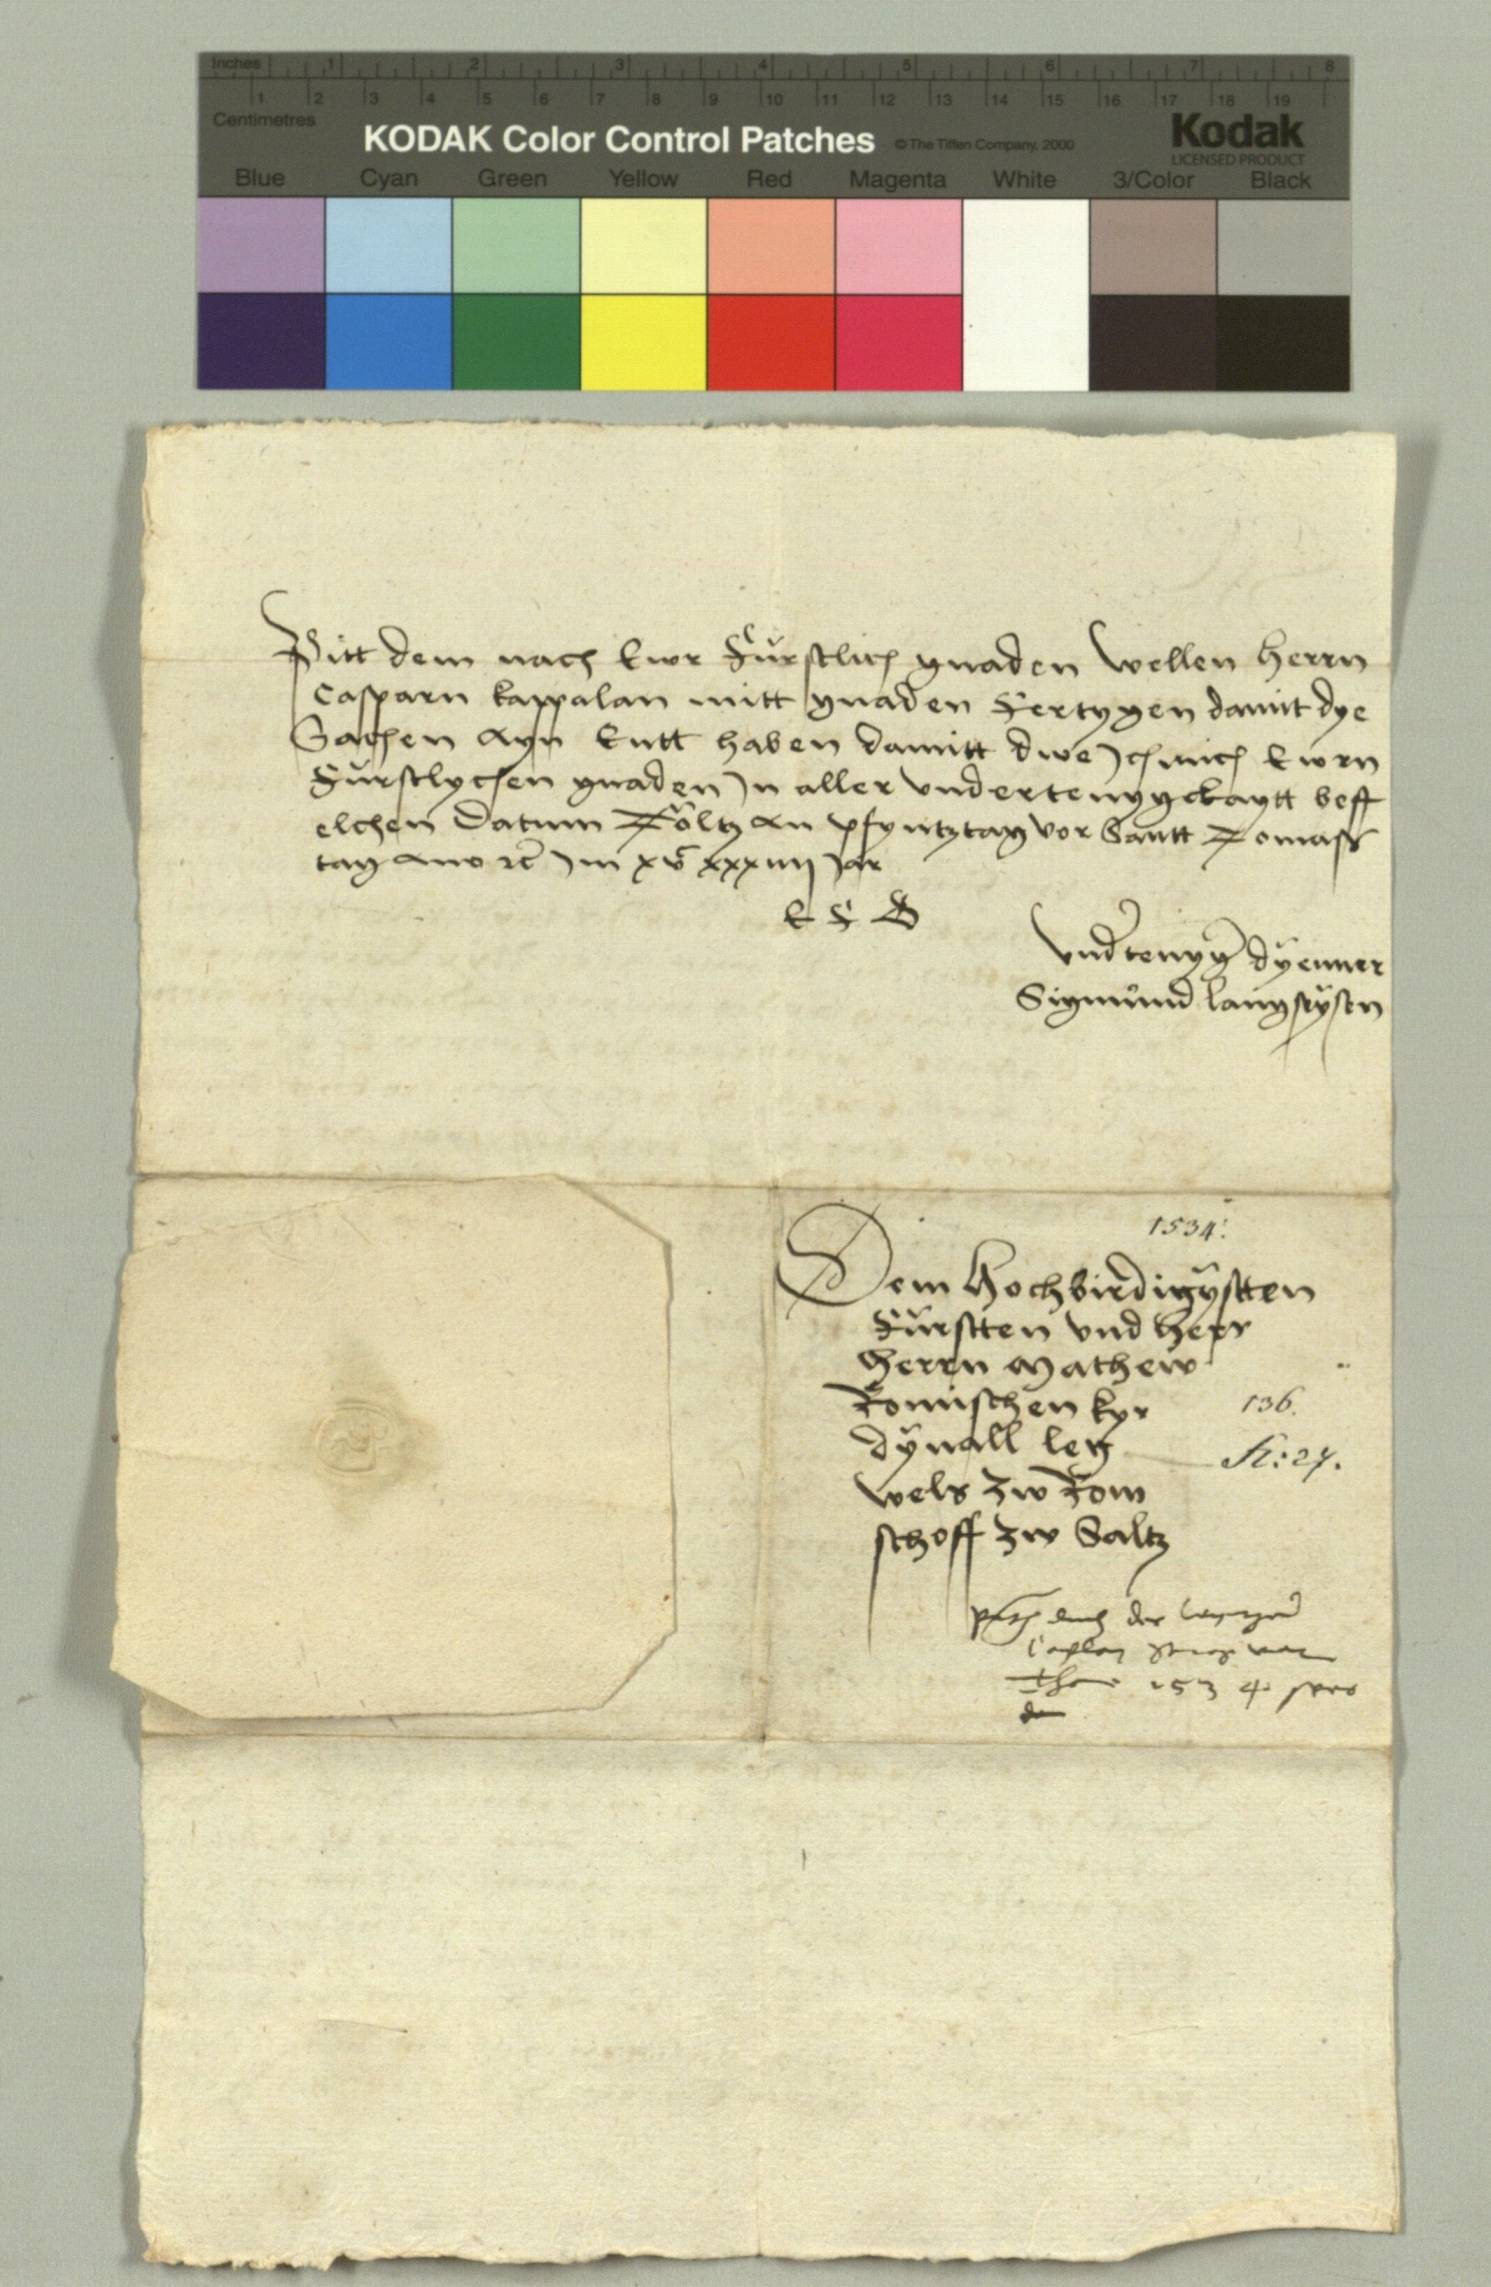 Inches 1 2 3 4 5 6 7 8
1 2 3 4 5 6 7 8 9 10 11 12 13 14 15 16 17 18 19
Centimetres
KODAK Color Control Patches © The Tiffen Company, 2000 Kodak
LICENSED PRODUCT
Blue Cyan Green Yellow Red Magenta White 3/Color Black
Pitt dem nach Ewr Fürstlich gnaden Wellen herrn
Casparn kappalan mitt gnaden Fertygen damit dye
Sachen ayn Entt haben damitt dwe Ich mich Ewrn
Fürstlychen gnaden In aller undertenygckaytt beff
elchen Datum Töltz an pfyntztag vor Santt Tomass
tag ano Im xv xxxiiij Jar
E F G
Undtenyg dÿenner
Sigmund
1534:
Dem Hochbirdigÿstten
Fürstten und herr
herrn Mathew
Romischen kar
dÿnall
zw Rom
schoff zw Saltz
136.
27.
der
1534